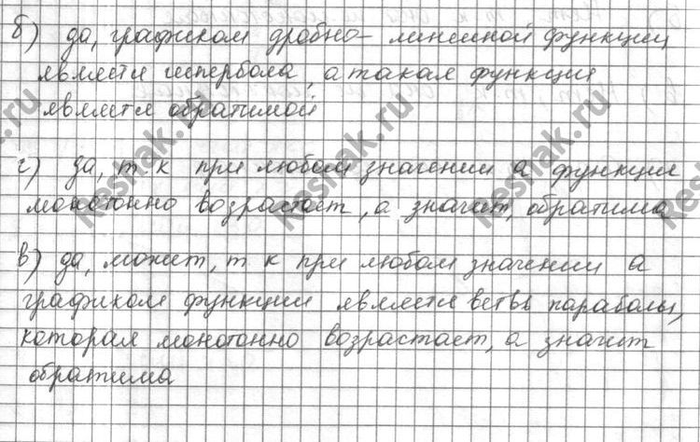 б) да, графиком дробно-линейной функции
является гипербола, а такая функция
является обратимой
г) да, т к при любом значении а функция
монотонно возрастает, а значит, обратима
в) да, может, т к при любом значении а
графиком функции является ветвь параболы,
которая монотонно возрастает, а значит
обратима
reshak.ru
reshak.ru
reshak.ru
reshak.ru